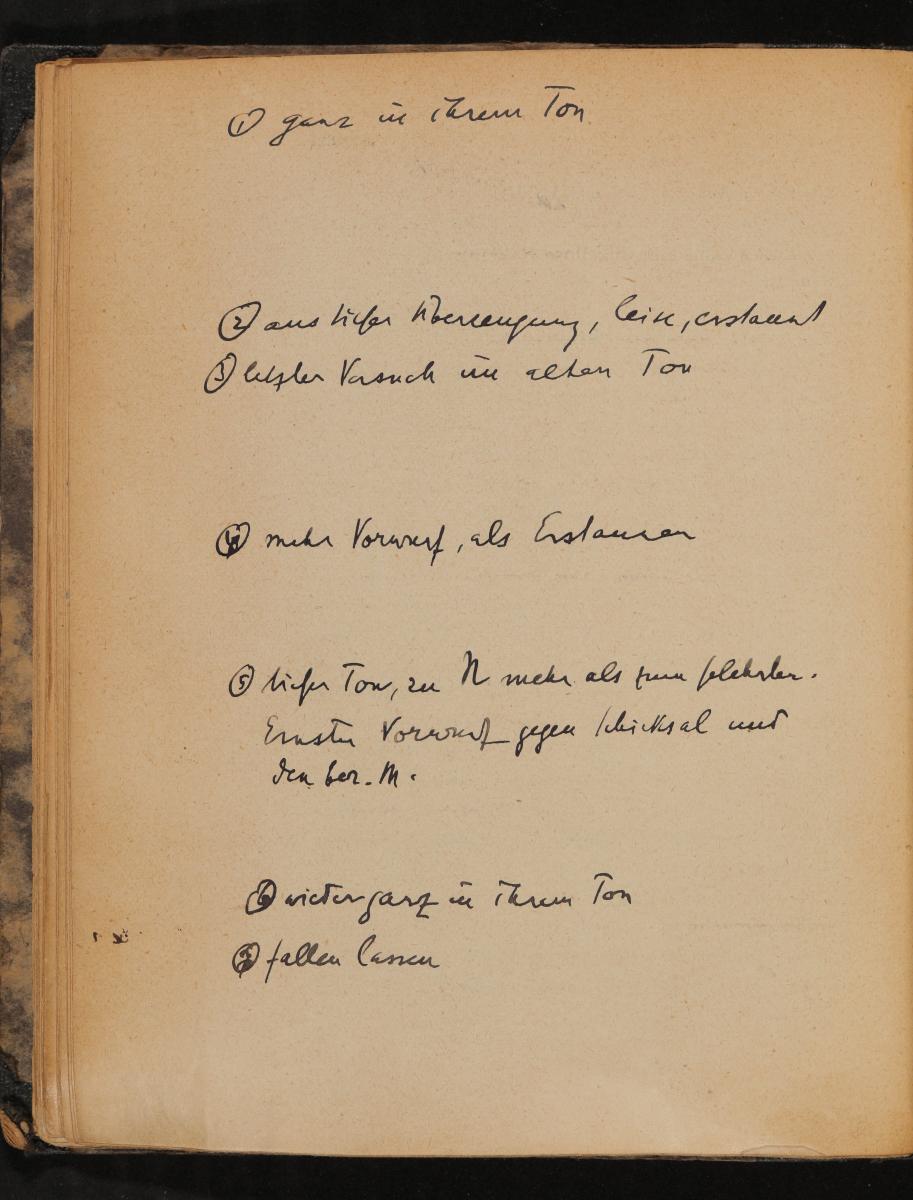 ① ganz in ihrem Ton
② aus tiefer Überzeugung, leise, erstaunt
③ letzter Versuch im alten Ton
④ mehr Vorwurf, als Erstaunen
⑤ tiefer Ton, zu N mehr als zum
Ernster Vorwurf gegen Schicksal und
den bez. M.
⑥ wieder ganz in ihrem Ton
fallen lassen